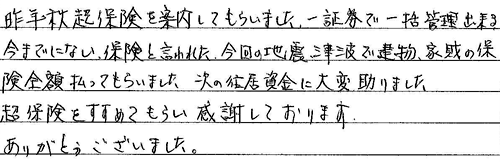 昨年秋超保険を案内してもらいました、一証券で一括管理出来る
今までにない、保険と言われた、今回の地震、津波で建物、家財の保
険金額払ってもらいました 次の住居資金に大変助りました
超保険をすすめてもらい感謝しております.
ありがとうございました。